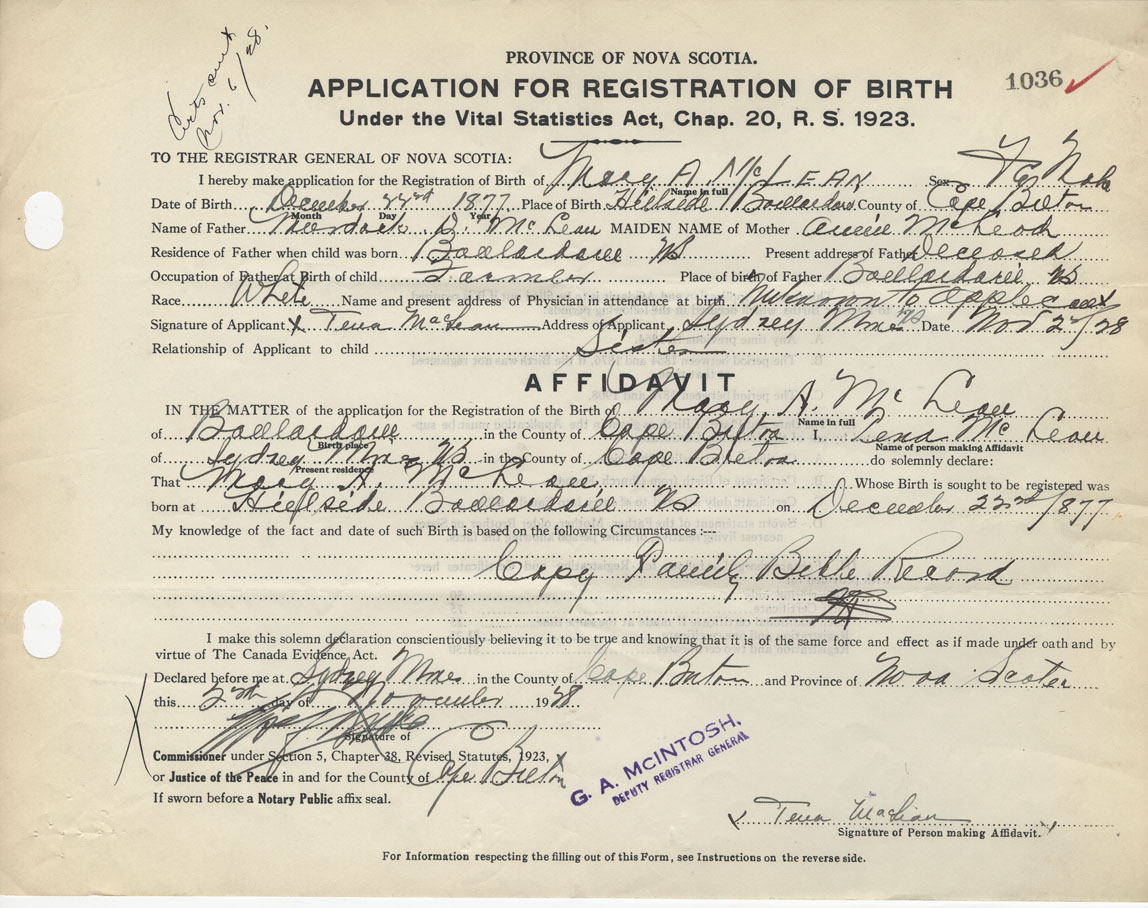 Certs sent
Nov. 6/28.
PROVINCE OF NOVA SCOTIA.
APPLICATION FOR REGISTRATION OF BIRTH
1036
Under the Vital Statistics Act, Chap. 20, R. S. 1923.
TO THE REGISTRAR GENERAL OF NOVA SCOTIA:
I hereby make application for the Registration of Birth of Mary A McLEAN Sex Fe Male
Name in full
Date of Birth December 22nd 1877 Place of Birth Hillside Boulardarie County of Cape Breton
Month Day Year
Name of Father Murdock D. McLean MAIDEN NAME of Mother Annie McLeod
Residence of Father when child was born Boulardarie NS Present address of Father Deceased
Occupation of Father at Birth of child Farmer Place of birth of Father Boulardarie NS
Race White Name and present address of Physician in attendance at birth Unknown to applicant
Signature of Applicant x Tena MacLean Address of Applicant Sydney Mines NS Date Nov 2/28
Relationship of Applicant to child Sister
AFFIDAVIT
IN THE MATTER of the application for the Registration of the Birth of Mary A. McLean
Name in full
of Boulardarie in the County of Cape Breton I, Tena McLean
Birth place
Name of person making Affidavit
of Sydney Mines NS in the County of Cape Breton do solemnly declare:
Present residence
That Mary A. McLean Whose Birth is sought to be registered was
born at Hillside Boulardarie NS on December 22nd 1877
My knowledge of the fact and date of such Birth is based on the following Circumstances :—
Copy Family Bible Record
I make this solemn declaration conscientiously believing it to be true and knowing that it is of the same force and effect as if made under oath and by
virtue of The Canada Evidence Act.
Declared before me at Sydney Mines in the County of Cape Breton and Province of Nova Scotia
this 2nd day of November 1928
Signature of
Commissioner under Section 5, Chapter 38, Revised Statutes, 1923,
or Justice of the Peace in and for the County of Cape Breton
If sworn before a Notary Public affix seal.
G. A. McINTOSH,
DEPUTY REGISTRAR GENERAL
x Tena MacLean
Signature of Person making Affidavit.
For Information respecting the filling out of this Form, see Instructions on the reverse side.